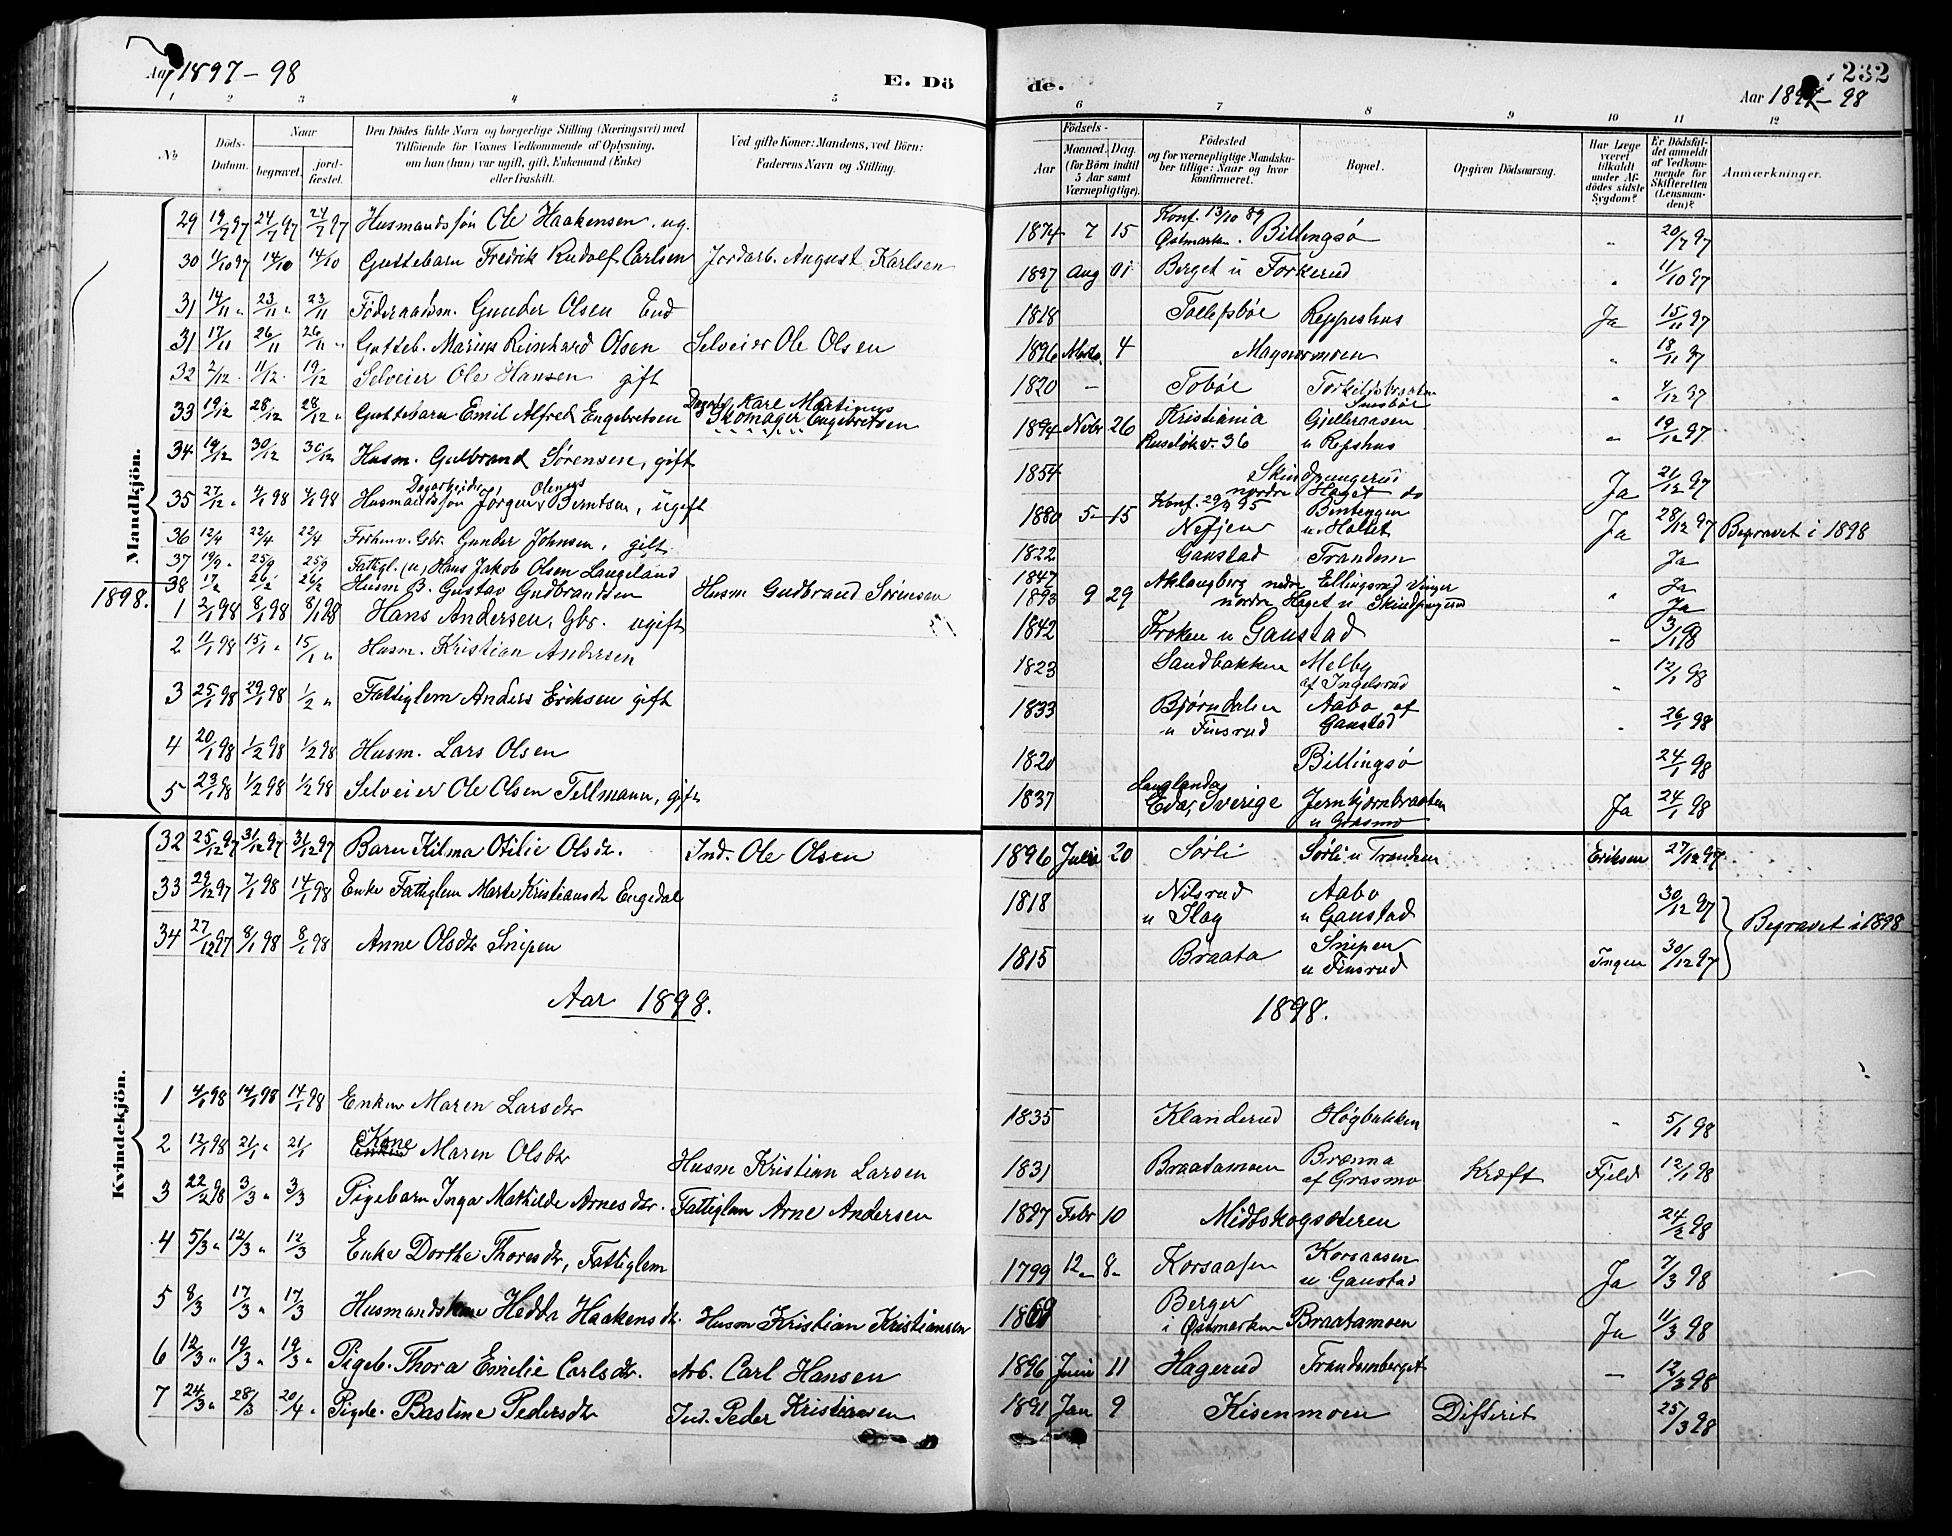 Aar 1897-98
E. Dö
de.
232
Aar 1897-98
1 2 3 4 5 6 7 8 9 10 11 12
No
Döds-Datum.
Naar
begravet.
jordfæstet.
Den Dödes fulde Navn og borgerlige Stilling (Næringsvei) med
Tilföiende for Voxnes Vedkommende af Oplysning,
om han (hun) var ugift, gift, Enkemand (Enke)
eller fraskilt.
Ved gifte Koner: Mandens, ved Börn:
Faderens Navn og Stilling.
Födsels-
Aar
Maaned. Dag.
(for Börn indtil
5 Aar samt
Værnepligtige).
Födested
og for værnepligtige Mandskaber tillige: Naar og hvor
konfirmeret.
Bopæl.
Opgiven Dödsaarsag.
Har Læge
været
tilkaldt
under Afdödes sidste
Sygdom?
Er Dödsfaldet anmeldt
af Vedkommende for
Skifteretten
(Lensmanden)?
Anmærkninger.
Mandkjön.
29 19/7 97 24/7 97 24/7 97 Husmandssøn Ole Haakensen. ug. 1874 7 15 Konf. 13/10 89 Østmarken. Billingsø " 20/7 97
30 1/10 97 14/10 14/10 Guttebarn Fredrik Rudolf Carlsen Jordarb. August Karlsen 1897 Aug 01 Berget u Torkerud " 11/10 97
31 14/11 " 23/11 " 23/11 Föderaadsm. Gunder Olsen 1818 Tollefsböe Reppeshus Ja 15/11 97
31 17/11 26/11 26/11 " Gutteb. Marius Reinhard Olsen Selveier Ole Olsen 1896 4 Magnormoen " 18/11 97
32 2/12 11/12 19/12 Selveier Ole Hansen gift 1820 - Toböe " 4/12 97
33 19/12 28/12 28/12 " Guttebarn Emil Alfred Engebretsen Karl Martinus Skomager Engebretsen 1894 Novbr 26 Kristiania Ruseløkv. 36 Gjelleraasen u Repshus " 19/12 97
34 19/12 30/12 30/12 Husm. Gulbrand Sørensen, gift 1854 Skindpungerud nordre Haget Ja 21/12 97
35 27/12 " 4/1 98 4/1 98 Dagarbeider, Olenus Husmandssøn Jørgen Berntsen, ugift 1880 5 15 Konf. 29/9 95 u. Holset Ja 28/12 97 Begravet i 1898
36 12/4 22/4 22/4 Forhenv. Gbr. Gunder Johnsen, gift 1822 Ganstad Trandem Ja
37 19/9 " 25/9 25/9 Fattigl. (u) Hans Jakob Olsen Langeland 1847 Aklangberg nedre Ellingsrud Vinger Ja
38 17/2 26/2 26/2 Husm B. Gustav Gudbrandsen Husm Gudbrand Sørensen 1893 9 29 nordre Haget u Skindpungerud " Ja
1898.
1 2/1 98 8/1 98 8/1 98 Hans Andersen, Gbr. ugift 1842 Kroken u Ganstad - 3/1 98
2 11/1 98 15/1 " 15/1 " Husm. Kristian Andersen 1823 Sandbakken Melby af Ingelsrud " 12/1 98
3 25/1 98 29/1 98 1/2 " Fattiglem Anders Eriksen gift 1833 Bjørndalen u Finsrud Aabo af Ganstad " 26/1 98
4 20/1 98 1/2 98 1/2 98 Husm. Lars Olsen 1820 Billingsø 24/1 98
5 23/1 98 1/2 98 1/2 98 Selveier Ole Olsen Tellmann, gift 1837 Langlanda, Eda, Sverige Jernbjørnbraaten u Grasmo Ja 24/1 98
Kvindekjön.
32 25/12 97 31/12 97 31/12 97 Barn Kilma Otilie Olsdr. Ind. Ole Olsen 1896 Julii 20 Sørli Sørli u Trandem Eriksen 27/12 97
33 29/12 97 7/1 98 14/1 98 Enke Fattiglem Marte Kristiansdr Engedal 1818 Nilsrud u Slag Aabo u Ganstad 30/12 97
34 27/12 97 8/1 98 8/1 98 Anne Olsdr Snipen 1815 Braata Snipen u Finsrud Ingen 30/12 97 Begravet i 1898
Aar 1898.
1898.
1 4/1 98 14/1 98 14/1 98 Enken Maren Larsdr 1835 Klanderud Høgbakken " 5/1 98
2 12/1 98 21/1 " 21/1 Kone Maren Olsdr Husm Kristian Larsen 1831 Braatamoen Brænna af Grasmo Kræft Fjeld 12/1 98
3 22/2 98 3/3 " 3/3 Pigebarn Inga Mathilde Arnesdr. Fattiglem Arne Andersen 1897 Febr 10 Midtskogsæteren 24/2 98
4 5/3 " 12/3 " 12/3 Enke Dorthe Thoresdr, Fattiglem 1799 12 8 Korsaasen Korsaasen u Ganstad Ja 7/3 98
5 8/3 17/3 " 17/3 Husmandskone Hedda Haakensdr. Husm Kristian Kristiansen Berger i Østmarken Braatamoen Ja 11/3 98
6 12/3 " 19/3 " 19/3 " Pigeb. Thora Emilie Carlsdr. Arb. Carl Hansen 1896 Juni 11 Hagerud Trandemberget - 12/3 98
7 24/3 " 28/3 20/4 " Pigeb. Bastine Pedersdr Ind. Peder Kristiansen 1891 Jan 9 Kisenmoen Difterit 25/3 98